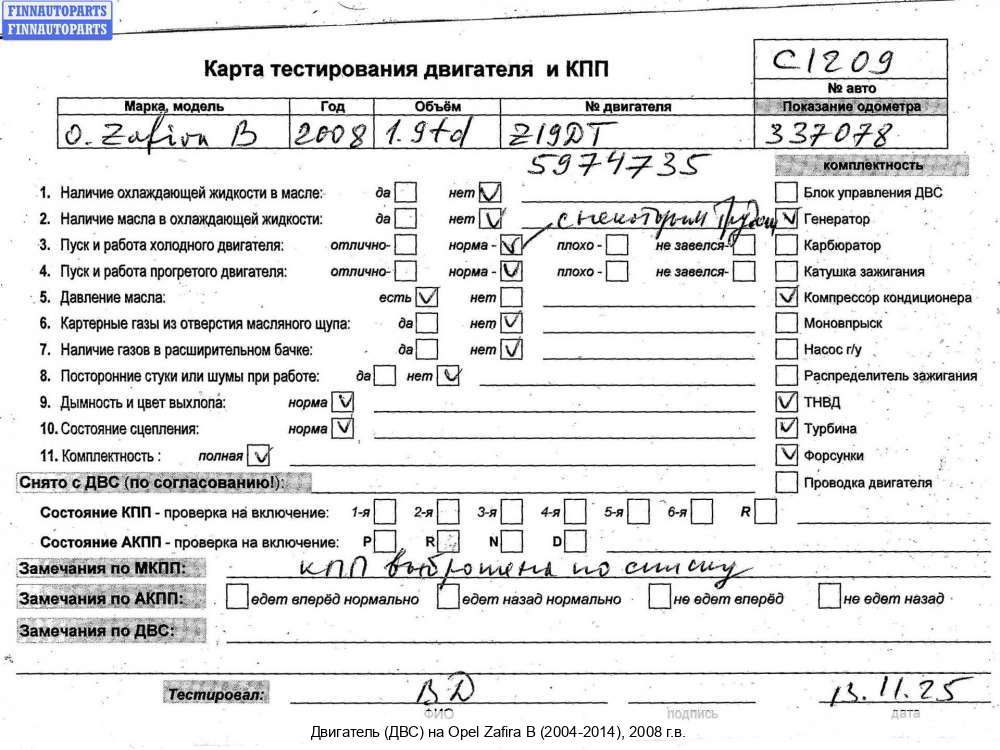 FINNAUTOPARTS
FINNAUTOPARTS
Карта тестирования двигателя и КПП
C1209
№ авто
Марка, модель Год Объём № двигателя Показание одометра
O. Zafira B 2008 1.9td Z19DT 337078
5974735
комплектность
1. Наличие охлаждающей жидкости в масле: да нет Блок управления ДВС
2. Наличие масла в охлаждающей жидкости: да нет с некоторым Генератор
3. Пуск и работа холодного двигателя: отлично- норма - плохо - не завелся- Карбюратор
4. Пуск и работа прогретого двигателя: отлично- норма - плохо - не завелся- Катушка зажигания
5. Давление масла: есть нет Компрессор кондиционера
6. Картерные газы из отверстия масляного щупа: да нет Моновпрыск
7. Наличие газов в расширительном бачке: да нет Насос г/у
8. Посторонние стуки или шумы при работе: да нет Распределитель зажигания
9. Дымность и цвет выхлопа: норма ТНВД
10. Состояние сцепления: норма Турбина
11. Комплектность : полная Форсунки
Снято с ДВС (по согласованию!): Проводка двигателя
Состояние КПП - проверка на включение: 1-я 2-я 3-я 4-я 5-я 6-я R
Состояние АКПП - проверка на включение: P R N D
Замечания по МКПП: КПП выброшена по списку
Замечания по АКПП: едет вперёд нормально едет назад нормально не едет вперёд не едет назад
Замечания по ДВС:
Тестировал: ВД 13.11.25
ФИО подпись дата
Двигатель (ДВС) на Opel Zafira B (2004-2014), 2008 г.в.